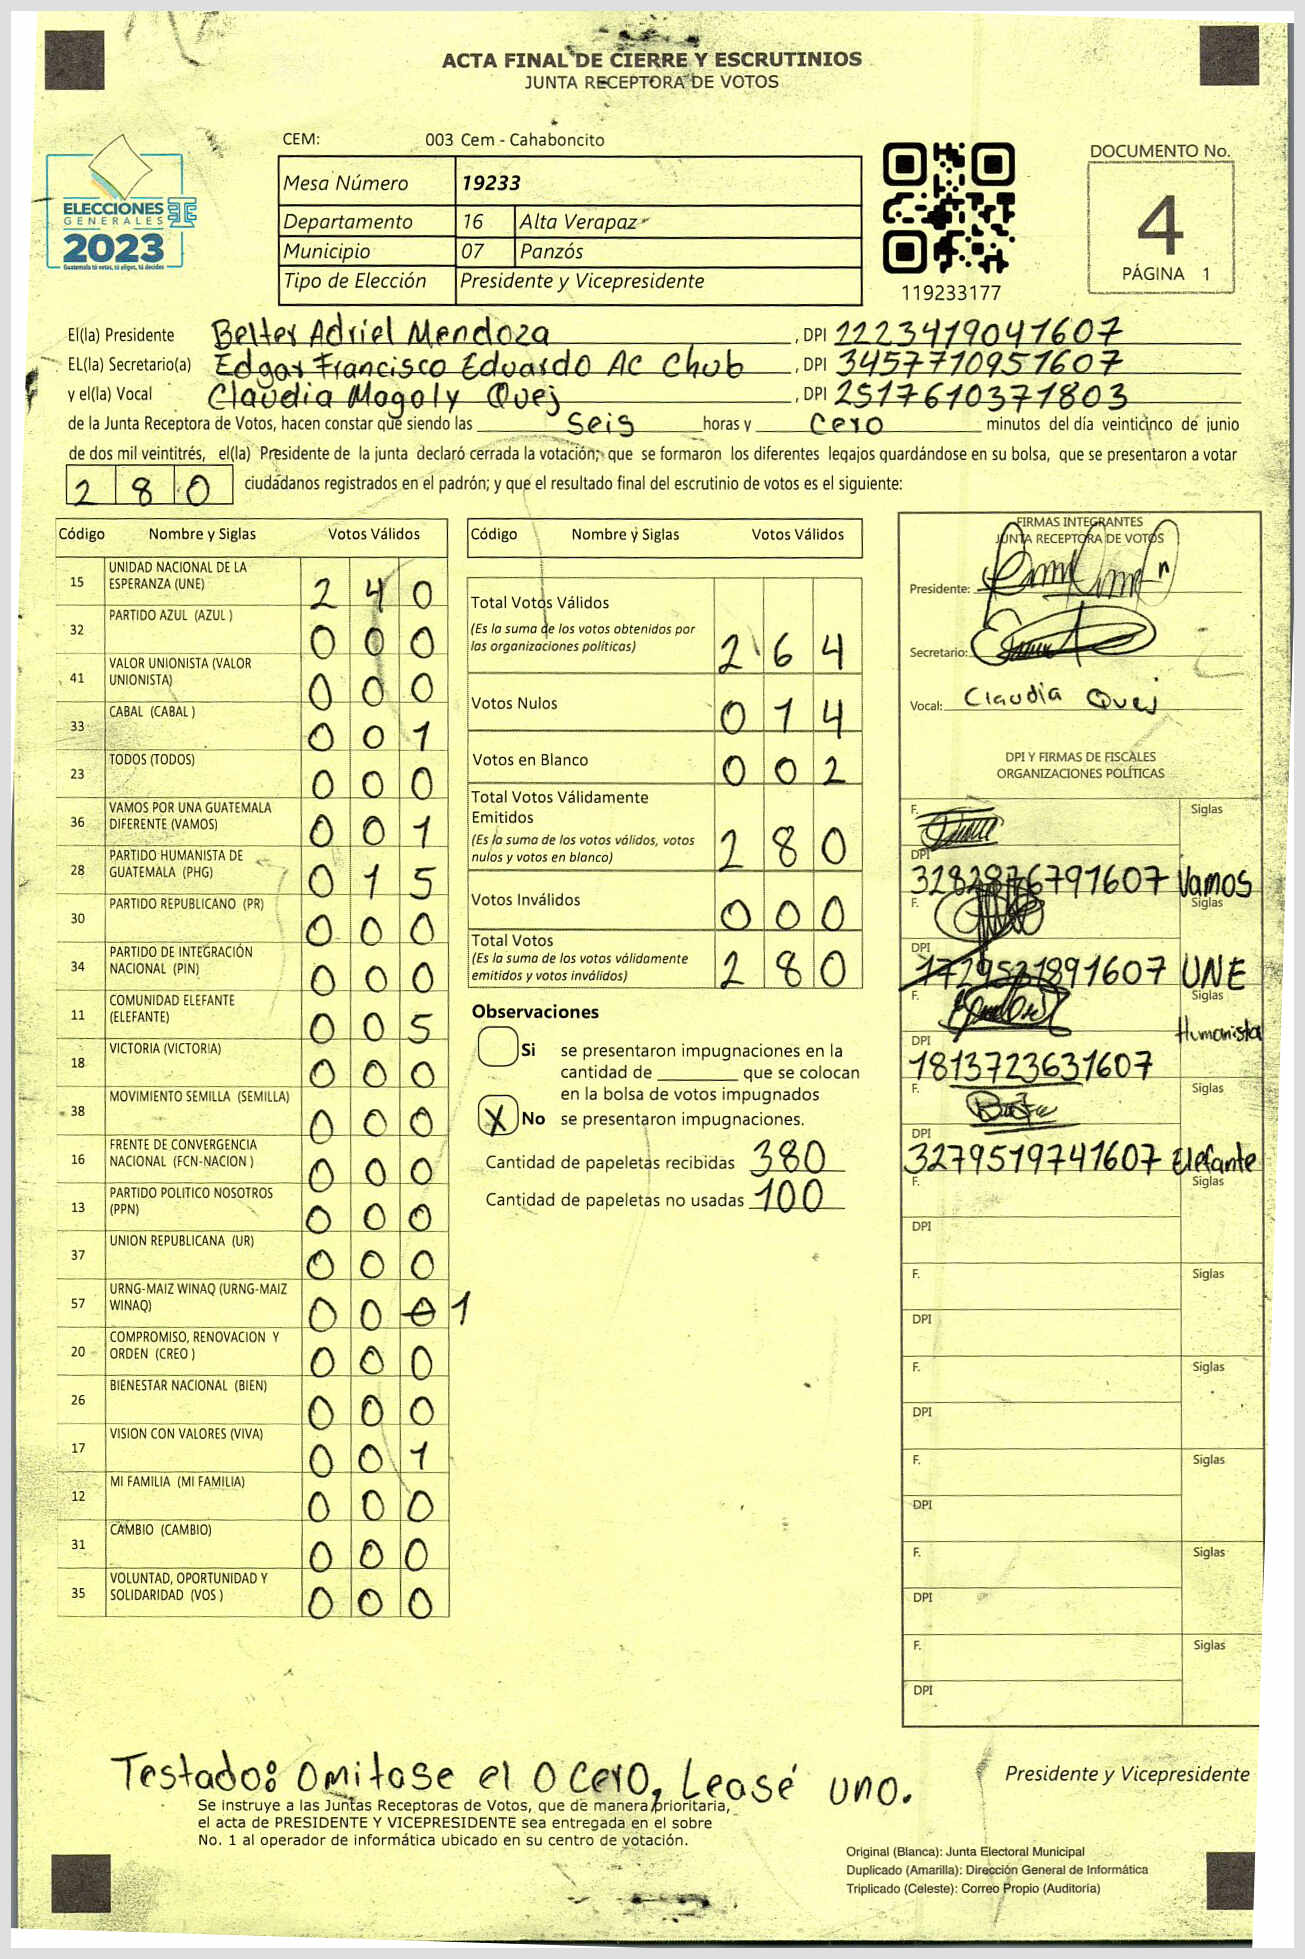 ACTA FINAL DE CIERRE Y ESCRUTINIOS
JUNTA RECEPTORA DE VOTOS
CEM: 003 Cem - Cahaboncito
ELECCIONES
GENERALES
2023
Guatemala tú votas, tú eliges, tú decides
Mesa Número 19233
Departamento 16 Alta Verapaz
Municipio 07 Panzós
Tipo de Elección Presidente y Vicepresidente
119233177
DOCUMENTO No.
4
PÁGINA 1
El(la) Presidente Belter Adriel Mendoza, DPI 2223419041607
EL(la) Secretario(a) Edgar Francisco Eduardo Ac Chub, DPI 3457710951607
y el(la) Vocal Claudia Magoly Quej, DPI 2517610371803
de la Junta Receptora de Votos, hacen constar que siendo las Seis horas y Cero minutos del día veinticinco de junio
de dos mil veintitrés, el(la) Presidente de la junta declaró cerrada la votación; que se formaron los diferentes legajos guardándose en su bolsa, que se presentaron a votar
2 8 0 ciudadanos registrados en el padrón; y que el resultado final del escrutinio de votos es el siguiente:
Código Nombre y Siglas Votos Válidos
15 UNIDAD NACIONAL DE LA
ESPERANZA (UNE) 2 4 0
32 PARTIDO AZUL (AZUL ) 0 0 0
41 VALOR UNIONISTA (VALOR
UNIONISTA) 0 0 0
33 CABAL (CABAL ) 0 0 1
23 TODOS (TODOS) 0 0 0
36 VAMOS POR UNA GUATEMALA
DIFERENTE (VAMOS) 0 0 1
28 PARTIDO HUMANISTA DE
GUATEMALA (PHG) 0 1 5
30 PARTIDO REPUBLICANO (PR) 0 0 0
34 PARTIDO DE INTEGRACIÓN
NACIONAL (PIN) 0 0 0
11 COMUNIDAD ELEFANTE
(ELEFANTE) 0 0 5
18 VICTORIA (VICTORIA) 0 0 0
38 MOVIMIENTO SEMILLA (SEMILLA) 0 0 0
16 FRENTE DE CONVERGENCIA
NACIONAL (FCN-NACION ) 0 0 0
13 PARTIDO POLITICO NOSOTROS
(PPN) 0 0 0
37 UNION REPUBLICANA (UR) 0 0 0
57 URNG-MAIZ WINAQ (URNG-MAIZ
WINAQ) 0 0 0 1
20 COMPROMISO, RENOVACION Y
ORDEN (CREO ) 0 0 0
26 BIENESTAR NACIONAL (BIEN) 0 0 0
17 VISION CON VALORES (VIVA) 0 0 1
12 MI FAMILIA (MI FAMILIA) 0 0 0
31 CAMBIO (CAMBIO) 0 0 0
35 VOLUNTAD, OPORTUNIDAD Y
SOLIDARIDAD (VOS ) 0 0 0
Código Nombre y Siglas Votos Válidos
Total Votos Válidos
(Es la suma de los votos obtenidos por
las organizaciones políticas) 2 6 4
Votos Nulos 0 1 4
Votos en Blanco 0 0 2
Total Votos Válidamente
Emitidos
(Es la suma de los votos válidos, votos
nulos y votos en blanco) 2 8 0
Votos Inválidos 0 0 0
Total Votos
(Es la suma de los votos válidamente
emitidos y votos inválidos) 2 8 0
Observaciones
Si se presentaron impugnaciones en la
cantidad de ________ que se colocan
en la bolsa de votos impugnados
X No se presentaron impugnaciones.
Cantidad de papeletas recibidas 380
Cantidad de papeletas no usadas 100
FIRMAS INTEGRANTES
JUNTA RECEPTORA DE VOTOS
Presidente:
Secretario:
Vocal: Claudia Quej
DPI Y FIRMAS DE FISCALES
ORGANIZACIONES POLÍTICAS
F. Siglas
DPI
3282876791607 Vamos
F. Siglas
DPI
1729521891607 UNE
F. Siglas
Humanista
DPI
1813723631607
F. Siglas
DPI
3279519741607 Elefante
F. Siglas
DPI
F. Siglas
DPI
F. Siglas
DPI
F. Siglas
DPI
F. Siglas
DPI
F. Siglas
DPI
Testado: Omitase el 0 cero, Leasé uno.
Presidente y Vicepresidente
Se instruye a las Juntas Receptoras de Votos, que de manera prioritaria,
el acta de PRESIDENTE Y VICEPRESIDENTE sea entregada en el sobre
No. 1 al operador de informática ubicado en su centro de votación.
Original (Blanca): Junta Electoral Municipal
Duplicado (Amarilla): Dirección General de Informática
Triplicado (Celeste): Correo Propio (Auditoría)